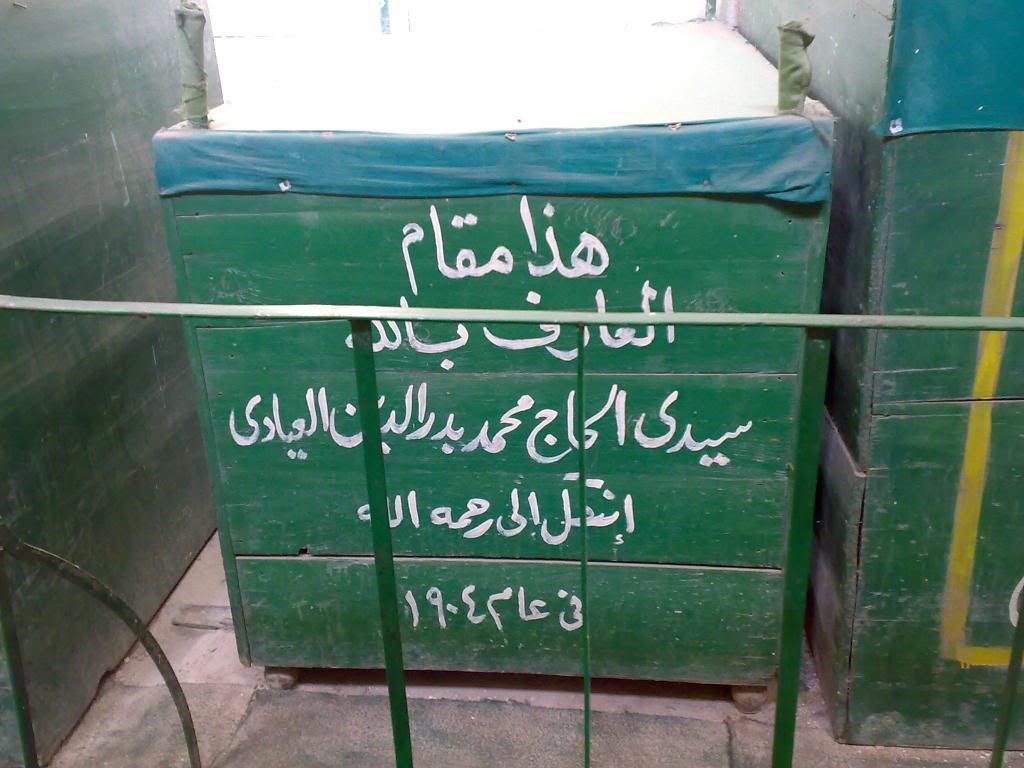 هذا مقام
العارف بالله
سيدى الحاج محمد بدر الدين العبادى
إنتقل إلى رحمه الله
فى عام ١٩٠٤